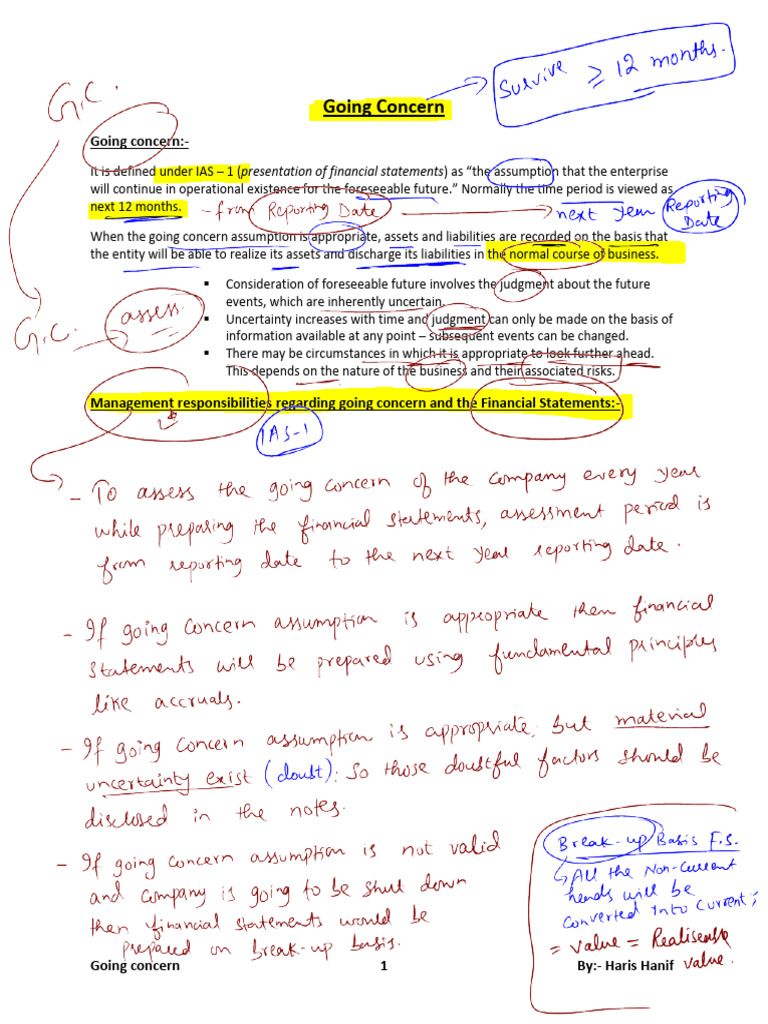 Survive ≥ 12 months.
G.C.
Going Concern
Going concern:-
It is defined under IAS – 1 (presentation of financial statements) as “the assumption that the enterprise
will continue in operational existence for the foreseeable future.” Normally the time period is viewed as
next 12 months. - from Reporting Date → next year Reporting Date
When the going concern assumption is appropriate, assets and liabilities are recorded on the basis that
the entity will be able to realize its assets and discharge its liabilities in the normal course of business.
▪ Consideration of foreseeable future involves the judgment about the future
events, which are inherently uncertain.
G.C. → assess
▪ Uncertainty increases with time and judgment can only be made on the basis of
information available at any point – subsequent events can be changed.
▪ There may be circumstances in which it is appropriate to look further ahead.
This depends on the nature of the business and their associated risks.
Management responsibilities regarding going concern and the Financial Statements:-
IAS-1
- To assess the going concern of the company every year
while preparing the financial statements, assessment period is
from reporting date to the next year reporting date.
- If going concern assumption is appropriate then financial
statements will be prepared using fundamental principles
like accruals.
- If going concern assumption is appropriate, but material
uncertainty exist (doubt): So those doubtful factors should be
disclosed in the notes.
- If going concern assumption is not valid
and company is going to be shut down
then financial statements would be
prepared on break-up basis.
Break-up Basis F.S.
↳ All the Non-Current
heads will be
converted into Current;
= value = Realiseable
value.
Going concern 1 By:- Haris Hanif